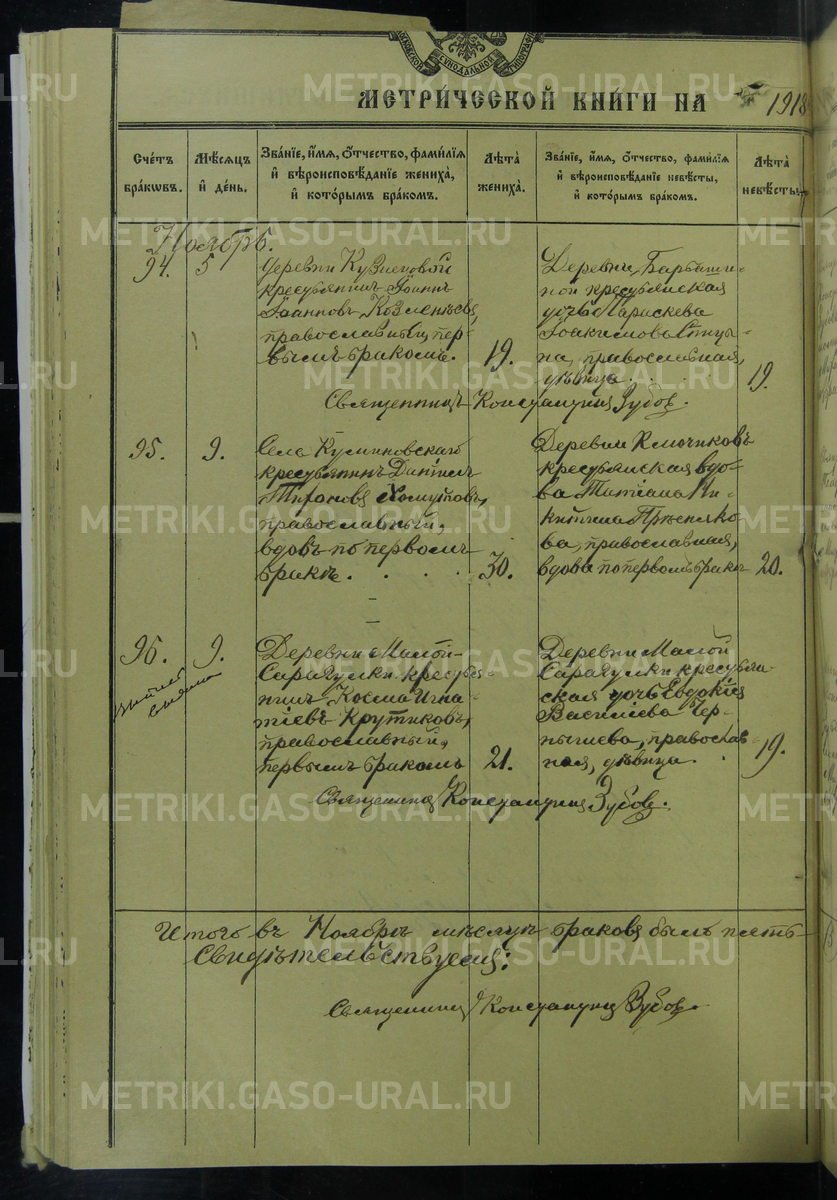 МЕТРИЧЕСКОЙ КНИГИ НА 1918
Счетъ браковъ.
Мѣсяцъ и день.
Званіе, имя, отчество, фамилія
и вѣроисповѣданіе жениха,
и которымъ бракомъ.
Лѣта жениха.
Званіе, имя, отчество, фамилія
и вѣроисповѣданіе невѣсты,
и которымъ бракомъ.
Лѣта невѣсты
Ноябрь.
94.
5
деревни
крестьянинъ Іоаннъ
Іоанновъ
православный, пер-
вымъ бракомъ.
19.
Деревни
ной крестьянская
дочь Параскева
Іоакимова
на, православная,
дѣвица
19.
Священникъ Константинъ Зубовъ.
95.
9.
Села
крестьянинъ Даніилъ
православный,
вдовъ по первомъ
бракѣ.
30.
Деревни Ключиковъ
крестьянская вдо-
ва Татіана Ни-
китина
ва, православная,
вдова по первомъ бракѣ
20.
96.
9.
Деревни Малой
Сарагулки крестья-
нинъ Косма Игна-
тіевъ Крутиковъ,
православный,
первымъ бракомъ
21.
Деревни Малой
Сарагулки крестьян-
ская дочь Евдокія
Василіева Чер-
нышева, православ
ная, дѣвица.
19.
Священникъ Константинъ Зубовъ.
Итого въ Ноябрѣ мѣсяцѣ браковъ было пять
Свидѣтельствуемъ:
Священникъ Константинъ Зубовъ.
METRIKI.GASO-URAL.RU